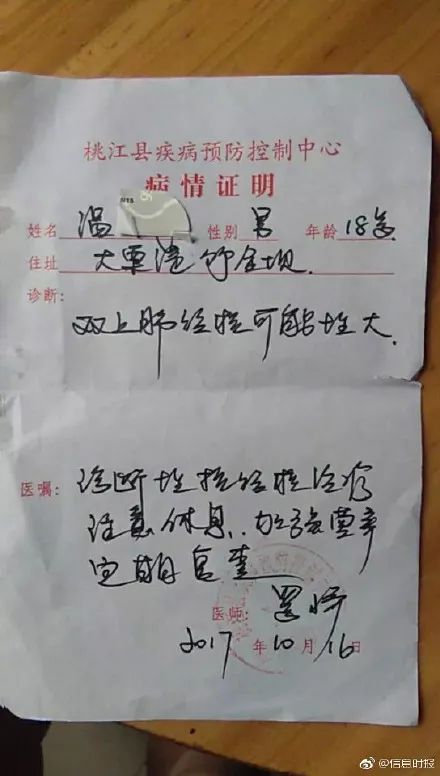 桃江县疾病预防控制中心
病情证明
姓名 温 性别 男 年龄 18岁
住址 大栗港
诊断:
双上肺结核可能性大.
医嘱: 诊断性抗结核治疗
注意休息、加强营养
定期复查
医师:
2017年10月16日
@信息时报